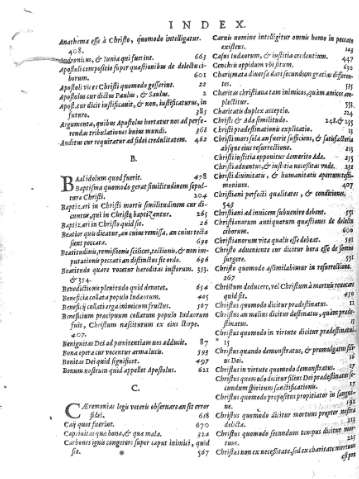 INDEX.
Anathema esse à Christo, quomodo intelligatur.
408.
Andronicus, & Iunia qui fuerint. 663
Apostoli compositio super quæstionibus de delectu ci-
borum. 601
Apostoli vices Christi quomodo gesserint. 22
Apostolus cur dictus Paulus, & Saulus. 2
Apostolus cur dicit iustificauit, & non, iustificaturus, in
futuro. 385
Argumenta, quibus Apostolus hortatur nos ad perfe-
rendas tribulationes huius mundi. 368
Auditum cur requiritur ad fidei credulitatem. 462
B.
Baal idolum quod fuerit. 478
Baptisma quomodo gerat similitudinem sepul-
turæ Christi. 204
Baptizari in Christi mortis similitudinem cur di-
cantur, qui in Christo baptizantur. 265
Baptizari in Christo quid sit. 26
Beatior quis dicatur, an cuius remissa, an cuius tecta
sunt peccata. 690
Beatitudinis, remissionis scilicet, tectionis, & non im-
putationis peccati an distinctus sit ordo. 696
Beatitudo quare vocatur hereditas iustorum. 353.
& 354.
Benedictionis plenitudo quid denotat. 654
Beneficia collata populo Iudæorum. 405
Beneficia collata erga minimos fructus. 527
Beneficium præcipuum collatum populo Iudæorum
fuit, Christum nasciturum ex eius stirpe.
407.
Benignitas Dei ad pœnitentiam nos adducit. 87
Bona opera cur vocentur arma lucis. 593
Bonitas Dei quid significet. 497
Bonum nostrum quid appellat Apostolus. 622
C.
Cæremonias legis veteris obseruare an sit error
fidei. 618
Caij quot fuerint. 670
Captiuitas quæ bona, & quæ mala. 322
Carbones ignis congerere super caput inimici, quid
sit. 567
Carnis nomine intelligitur omnis homo in peccato
existens. 124
Casus Iudæorum, & iustitia credentium. 447
Cenchris oppidum vbi situm. 692
Charismata diuersa dari secundum gratias differen-
tes. 525
Charitas christiana tam inimicos, quàm amicos am-
plectitur. 551
Charitas duplex accepta. 224
Christi & Adæ similitudo. 248 & 235
Christi prædestinationis explicatio. 13
Christi mors ad an fuerit sufficiens, & satisfactoria
absque eius resurrectione.
Christi iustitia opponitur demerito Adæ. 235
Christi aduentus, & iustitia necessitas vnde. 232
Christi diuinitatis, & humanitatis apertum testi-
monium. 407
Christiani perfecti qualitates, & conditiones.
545
Christiani ad inuicem subuenire debent. 551
Christianorum antiquorum quæstiones de delectu
ciborum. 600
Christianorum vita qualis esse debeat. 593
Christo adueniente cur dicitur hora esse de somno
surgere. 591
Christo quomodo assimilabimur in resurrectione.
267
Christum deducere, vel Christum à mortuis reuocare
quid sit. 459
Christus quomodo dicitur prædestinatus. 12
Christus an melius dicitur destinatus, quàm prædesti-
natus. 13
Christus quomodo in virtute dicitur prædestinatus.
15
Christus quando demonstratus, & promulgatus fili-
us Dei. 16
Christus in virtute quomodo demonstratus. 17
Christus quomodo dicitur filius Dei prædestinatus se-
cundum spiritum sanctificationis. 17
Christus quomodo propositus propitiator in sangui-
ne. 192
Christus quomodo dicitur mortuus propter nostra
delicta. 213
Christus quomodo secundum tempus dicitur mor-
tuus. 225
Christus non ex necessitate, sed ex charitate mortuus